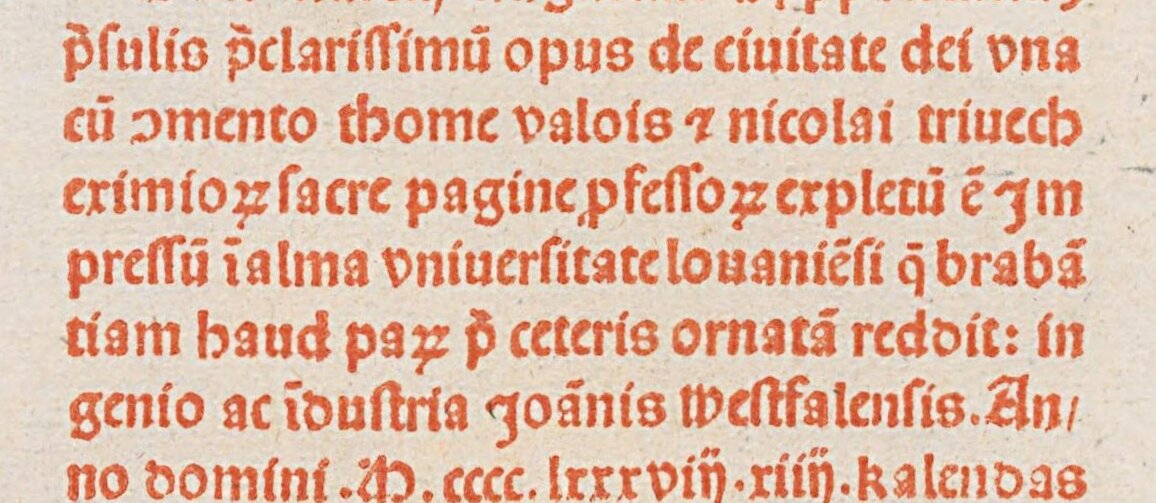 p̄sulis p̄clarissimū opus de ciuitate dei vna
cū ꝯmento thome valois ⁊ nicolai triuech
eximioꝝ sacre pagine ꝓfessoꝝ expletū ē Im
pressū ī alma vniuersitate louaniēsi q̄ brabā
tiam haud paꝝ p̄ ceteris ornatā reddit: in
genio ac īdustria Joānis westfalensis. An/
no domini .M. cccc. lxxxviij. xiiij. kalendas